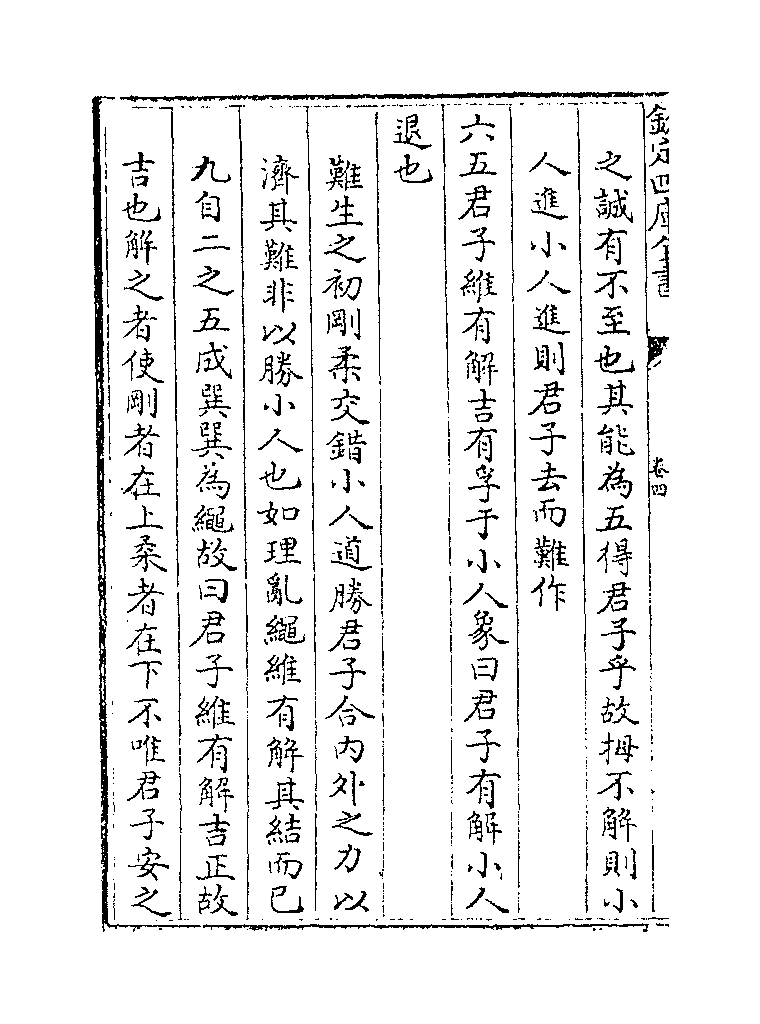 欽定四庫全書 卷四
之誠有不至也其能為五得君子乎故拇不解則小
人進小人進則君子去而難作
六五君子維有解吉有孚于小人象曰君子有解小人
退也
難生之初剛柔交錯小人道勝君子合内外之力以
濟其難非以勝小人也如理亂繩維有解其結而已
九自二之五成巽巽為繩故曰君子維有解吉正故
吉也解之者使剛者在上柔者在下不唯君子安之